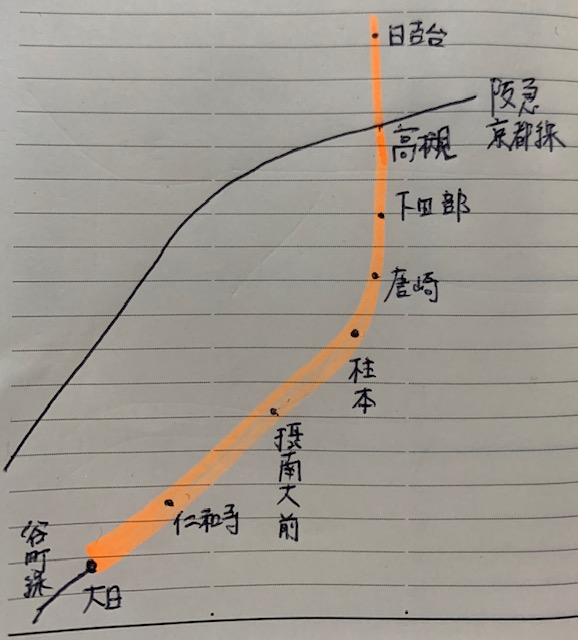 日吉台
阪急
京都線
高槻
下田部
唐崎
柱本
摂南大前
仁和寺
谷町線
大日